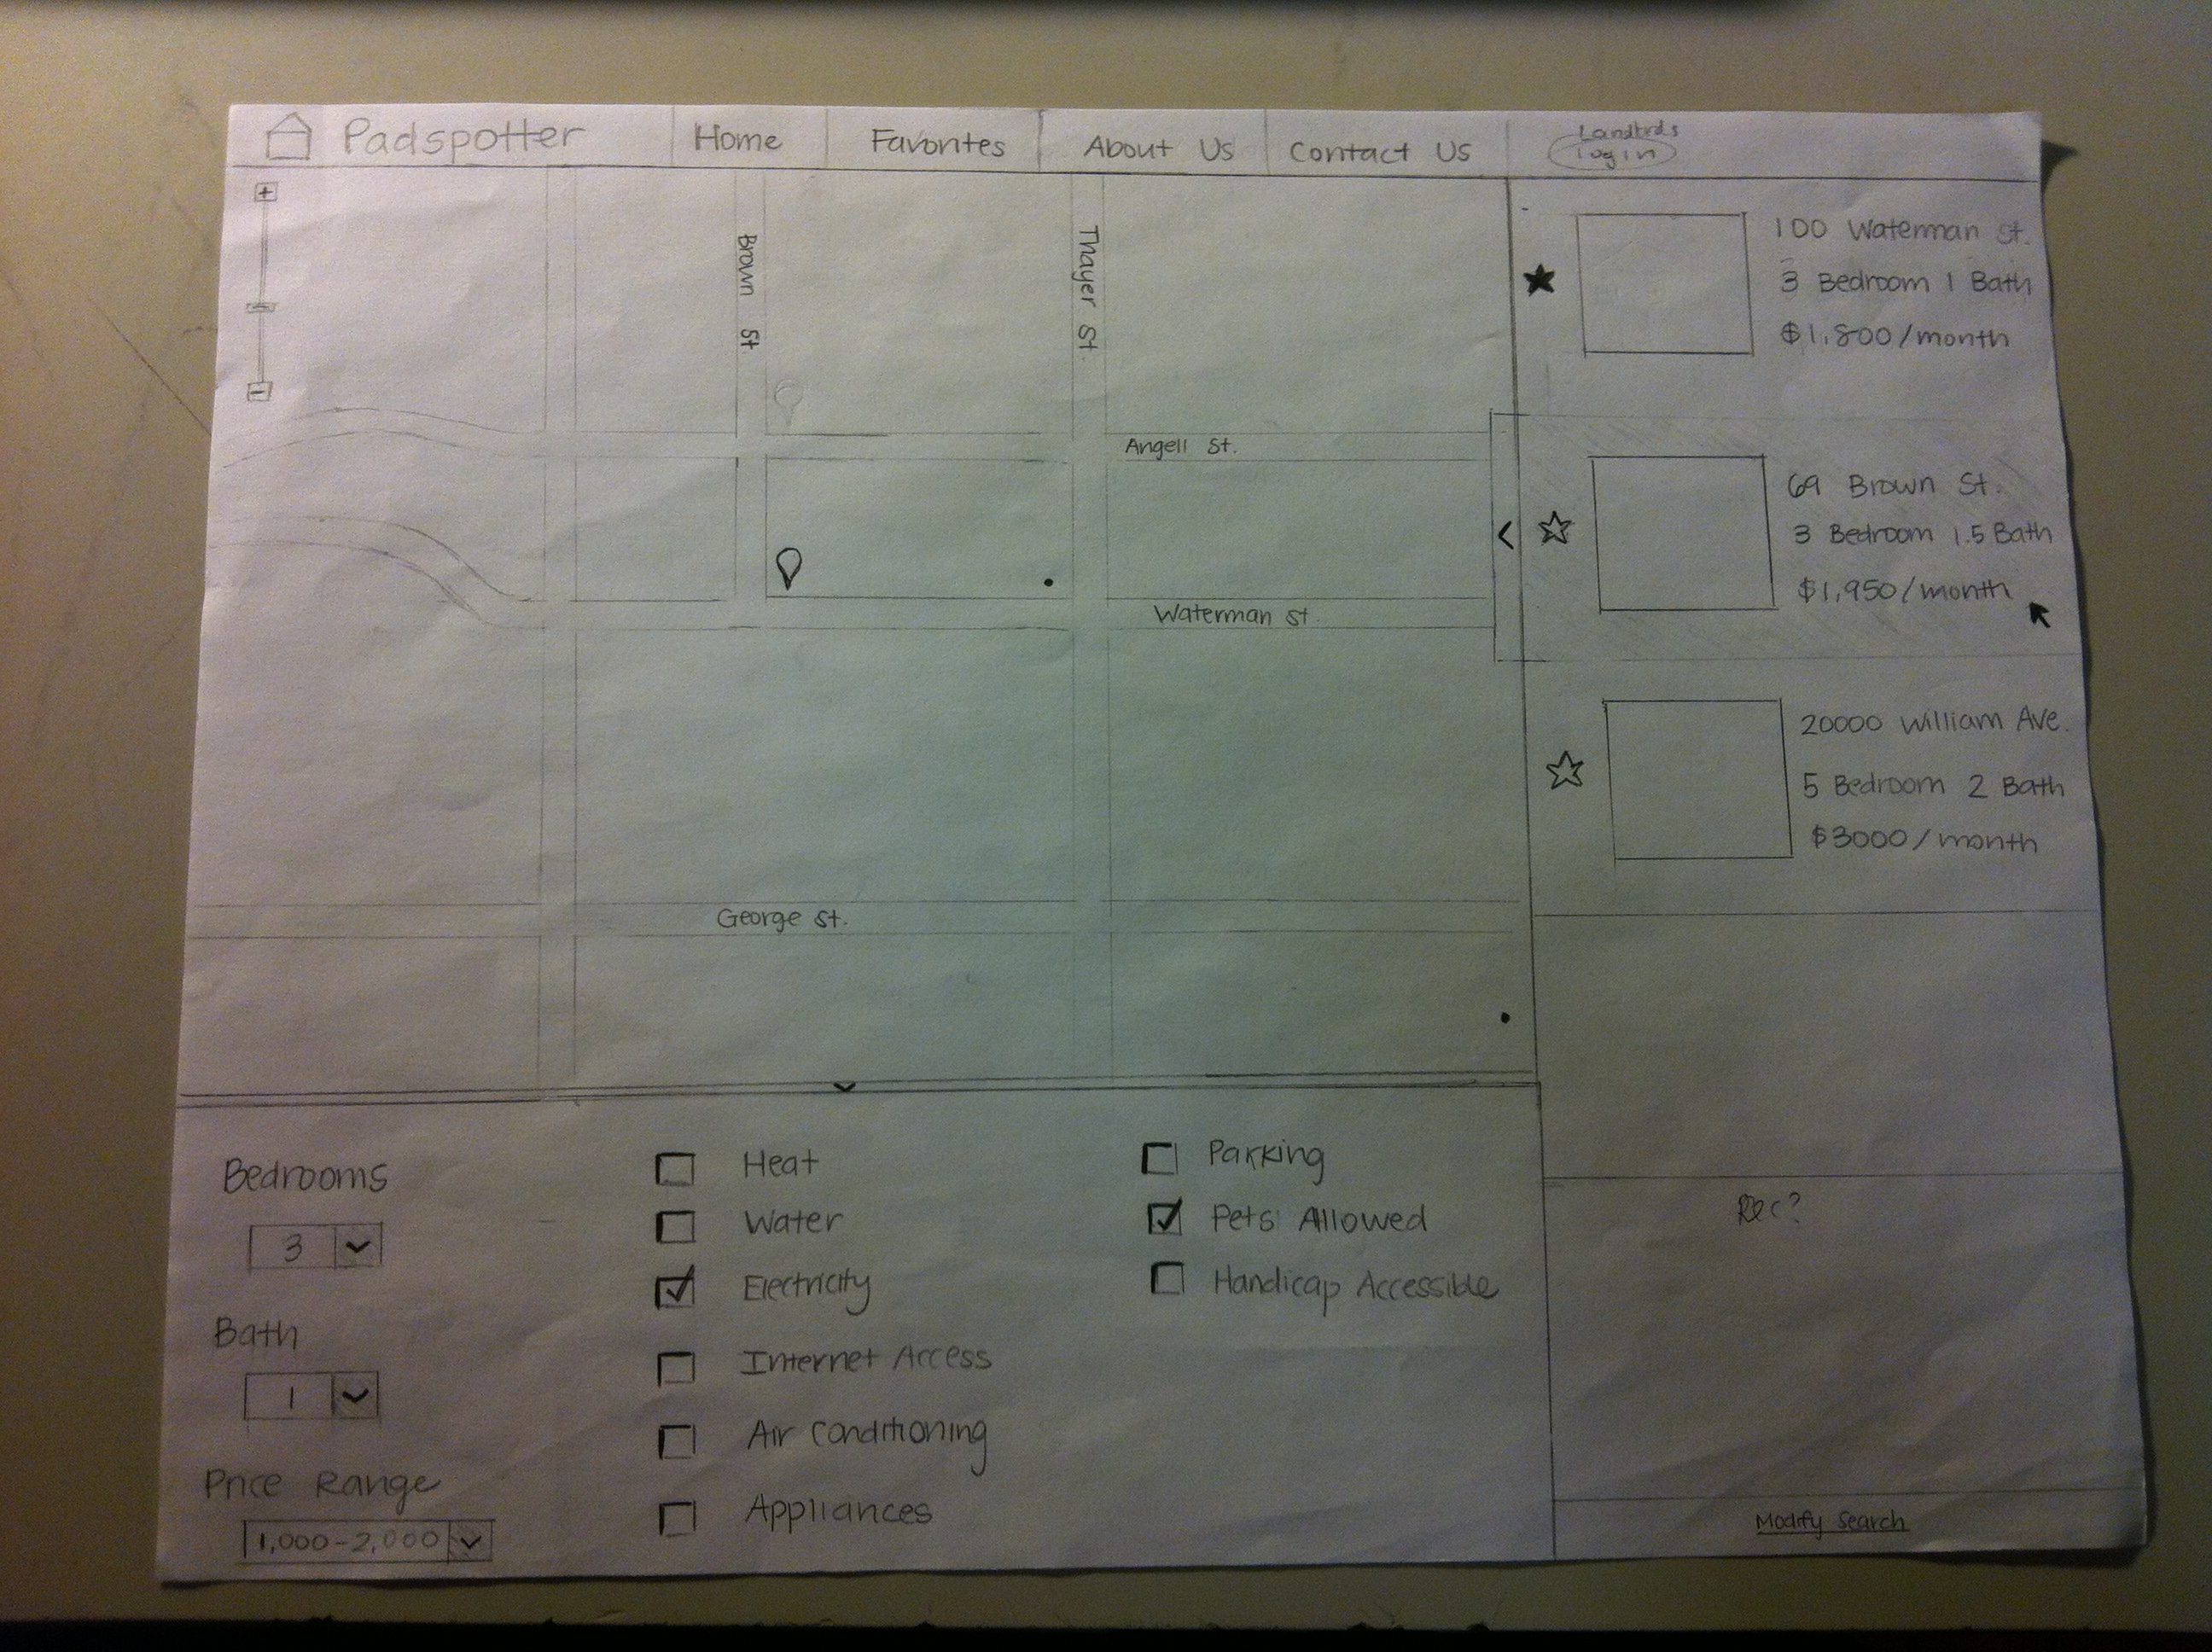 Padspotter
Home
Favorites
About Us
Contact Us
Landlords
log in
+
-
Brown St
Thayer St.
Angell St.
Waterman St.
George St.
100 Waterman St.
3 Bedroom 1 Bath
$1,800/month
69 Brown St.
3 Bedroom 1.5 Bath
$1,950/month
20000 William Ave.
5 Bedroom 2 Bath
$3000/month
Rec?
Modify Search
Bedrooms
3
Bath
1
Price Range
1,000-2,000
Heat
Water
Electricity
Internet Access
Air Conditioning
Appliances
Parking
Pets Allowed
Handicap Accessible